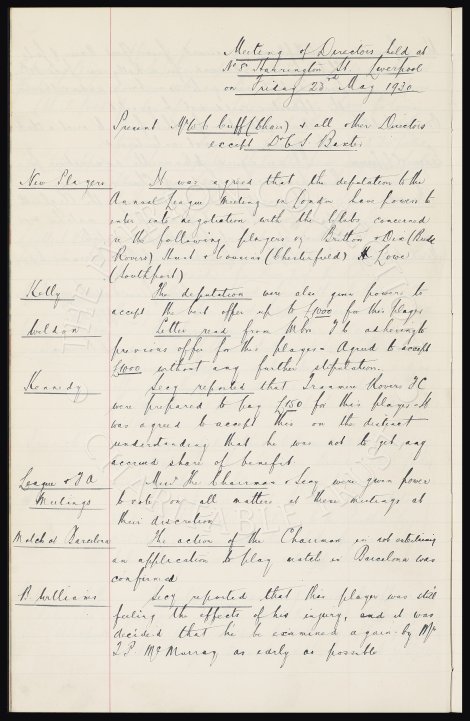 Meeting of Directors held at
No 8 Harrington St. Liverpool
on Friday 23rd May 1930
Present Mr W C Cuff (Chair) & all other Directors
except Dr C S Baxter
New Players It was agreed that the deputation to the
Annual League Meeting in London have powers to
enter into negotiation with the Clubs concerned
in the following players vz Britton & Dix (Bristol
Rovers) Hunt & Cousins (Chesterfield) & Lowe
(Southport)
Kelly The deputation were also given powers to
accept the best offer up to £1000 for this player
Weldon Letter read from Wton F.C. adhering to
previous offer for this player. Agreed to accept
£1000 without any further stipulation.
Kennedy Secy reported that Tranmere Rovers FC
were prepared to pay £150 for this player. It
was agreed to accept this on the distinct
understanding that he was not to get any
accrued share of benefit
League & F A The Chairman & Secy were given power
Meetings to vote on all matters at these meetings at
their discretion
Match at Barcelona The action of the Chairman in not entertaining
an application to play match in Barcelona was
confirmed
B Williams Secy reported that this player was still
feeling the effects of his injury, and it was
decided that he be examined again by Mr
T P McMurray as early as possible